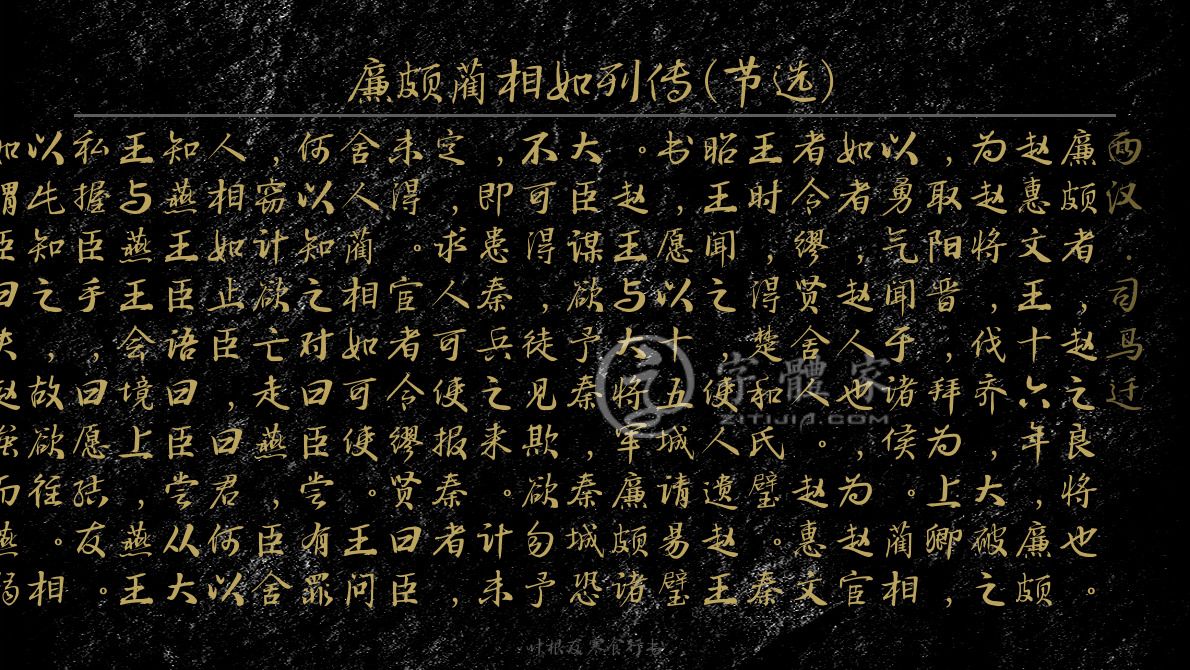 廉颇蔺相如列传(节选)
两汉.司马迁
廉颇者，赵之良将也。
赵惠文王十六年，廉颇
为赵将，伐齐，大破之
，取阳晋，拜为上卿，
以勇气闻于诸侯。蔺相
如者，赵人也，为赵宦
者令缪贤舍人。赵惠文
王时，得楚和氏璧。秦
昭王闻之，使人遗赵王
，书愿以十五城请易璧
。赵王与大将军廉颇诸
大臣谋欲予秦，秦城恐
不可得，徒见欺欲勿予
，即患秦兵之来。计未
定，求人可使报秦者，
未得。宦者令缪贤曰臣
舍人蔺相如可使。王问
何以知之对曰臣尝有罪
，窃计欲亡走燕，臣舍
人相如止臣，曰君何以
知燕王臣语曰臣尝从大
王与燕王会境上，燕王
私握臣手，曰愿结友。
以知之，故欲往。相
如谓臣曰夫赵强而燕弱
字體家
ZITIJIA.COM
叶根友寒食行书